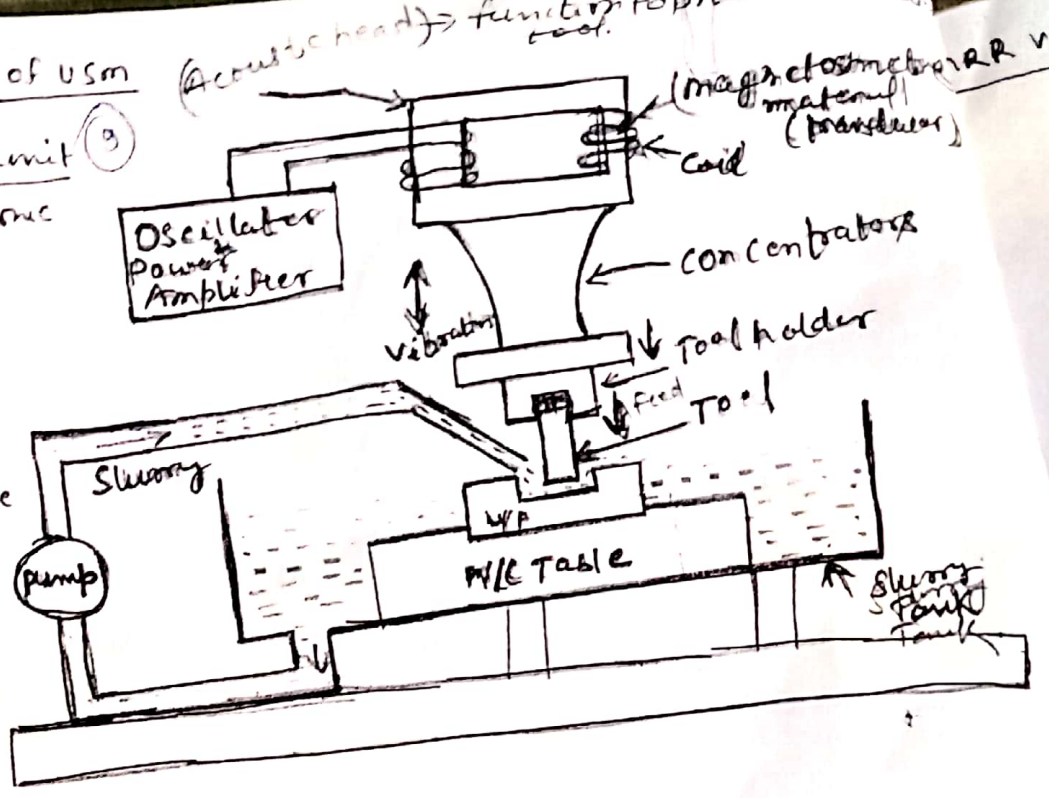 of USM
(Acoustic head) → function to
tool.
unit
9
(magnetostrictor
material)
(transducer)
RR
coil
Oscillater
power
Amplifier
concentrators
vibration
Tool holder
Feed
Tool
Slurry
W/P
M/C Table
pump
Slurry
Tank